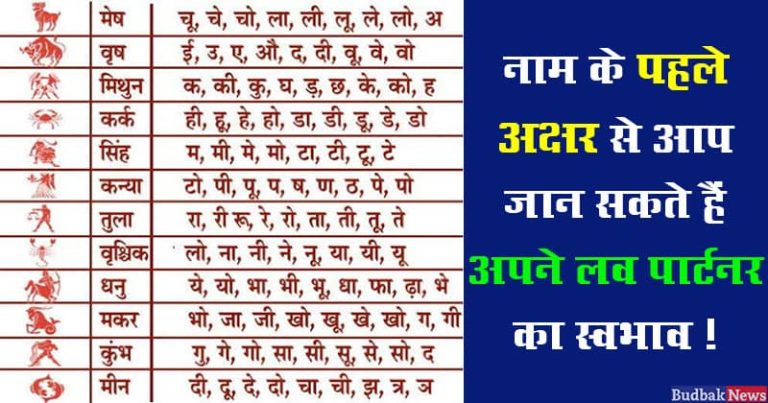 मेष चू, चे, चो, ला, ली, लू, ले, लो, अ
वृष ई, उ, ए, औ, द, दी, वू, वे, वो
मिथुन क, की, कु, घ, ड़, छ, के, को, ह
कर्क ही, हू, हे, हो, डा, डी, डू, डे, डो
सिंह म, मी, मे, मो, टा, टी, टू, टे
कन्या टो, पी, पू, प, ष, ण, ठ, पे, पो
तुला रा, री रू, रे, रो, ता, ती, तू, ते
वृश्चिक लो, ना, नी, ने, नू, या, यी, यू
धनु ये, यो, भा, भी, भू, धा, फा, ढ़ा, भे
मकर भो, जा, जी, खो, खू, खे, खो, ग, गी
कुंभ गु, गे, गो, सा, सी, सू, से, सो, द
मीन दी, दू, दे, दो, चा, ची, झ, त्र, ञ
नाम के पहले
अक्षर से आप
जान सकते हैं
अपने लव पार्टनर
का स्वभाव !
Budbak News